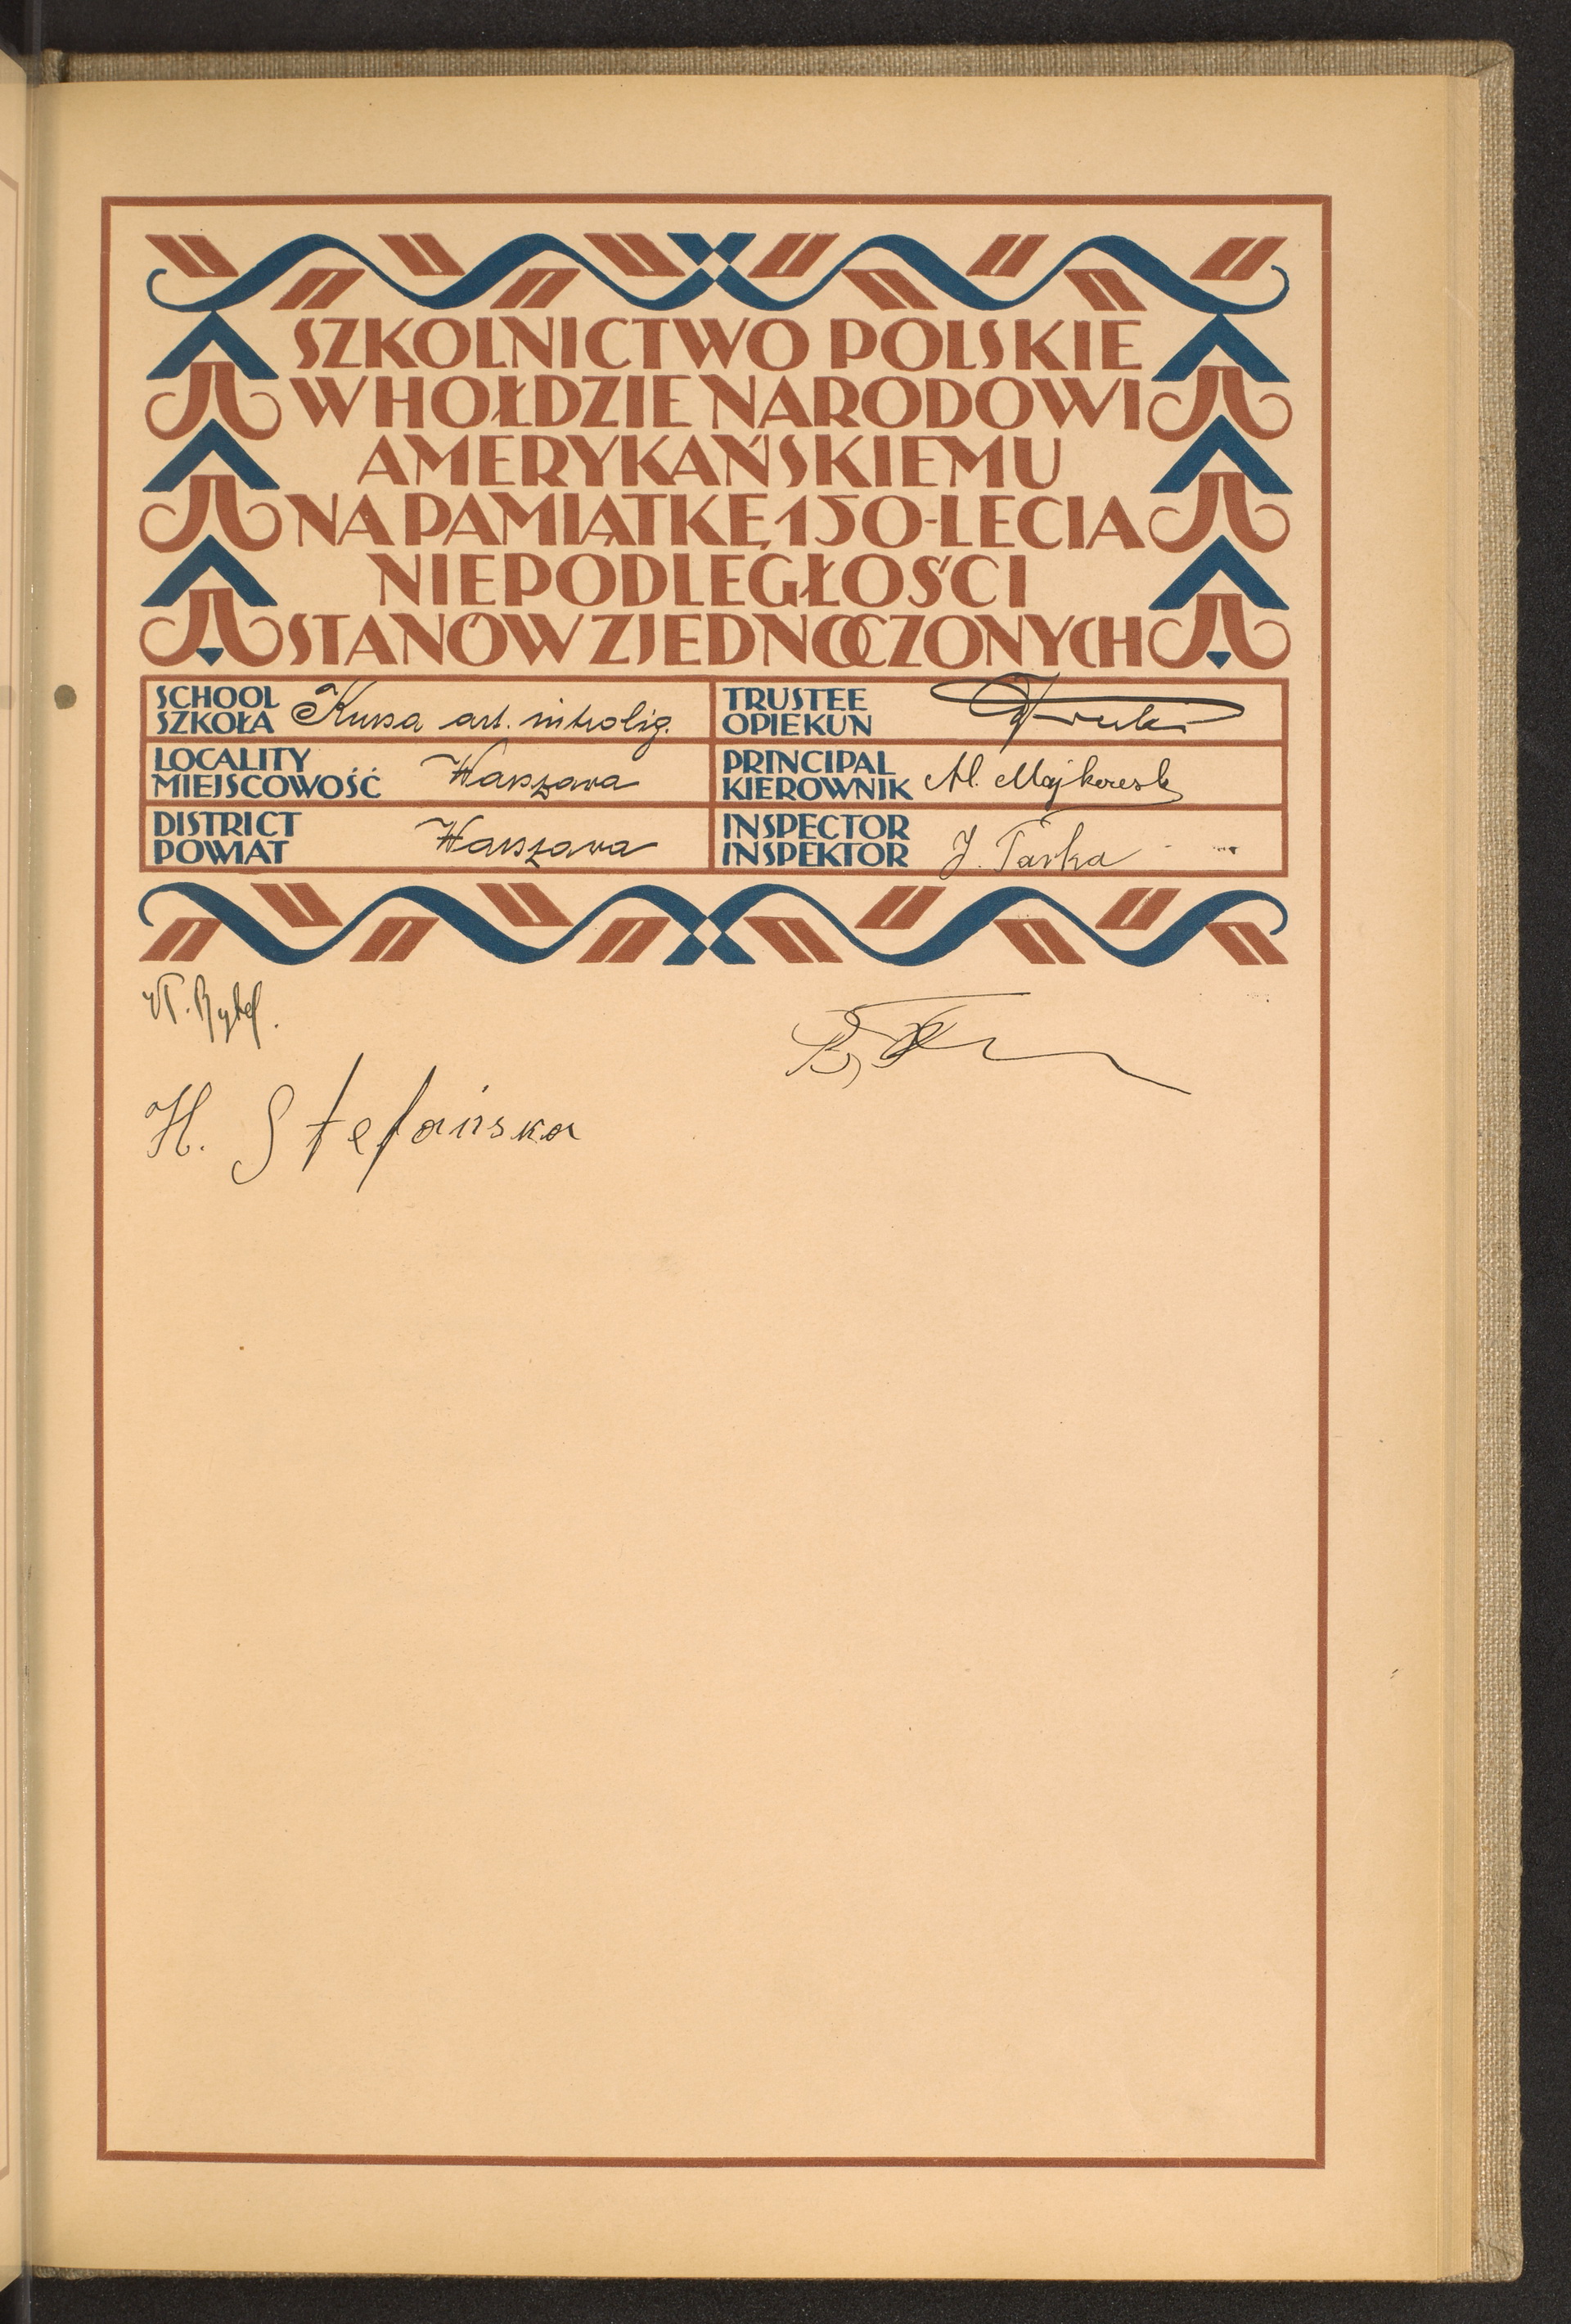 SZKOLNICTWO POLSKIE
W HOŁDZIE NARODOWI
AMERYKAŃSKIEMU
NA PAMIĄTKĘ 150-LECIA
NIEPODLEGŁOŚCI
STANÓW ZJEDNOCZONYCH
SCHOOL
SZKOŁA Kursa art. introlig.
TRUSTEE
OPIEKUN
LOCALITY
MIEJSCOWOŚĆ Warszawa
PRINCIPAL
KIEROWNIK
DISTRICT
POWIAT Warszawa
INSPECTOR
INSPEKTOR J. Tarka
Rytel.
H. Stefańska